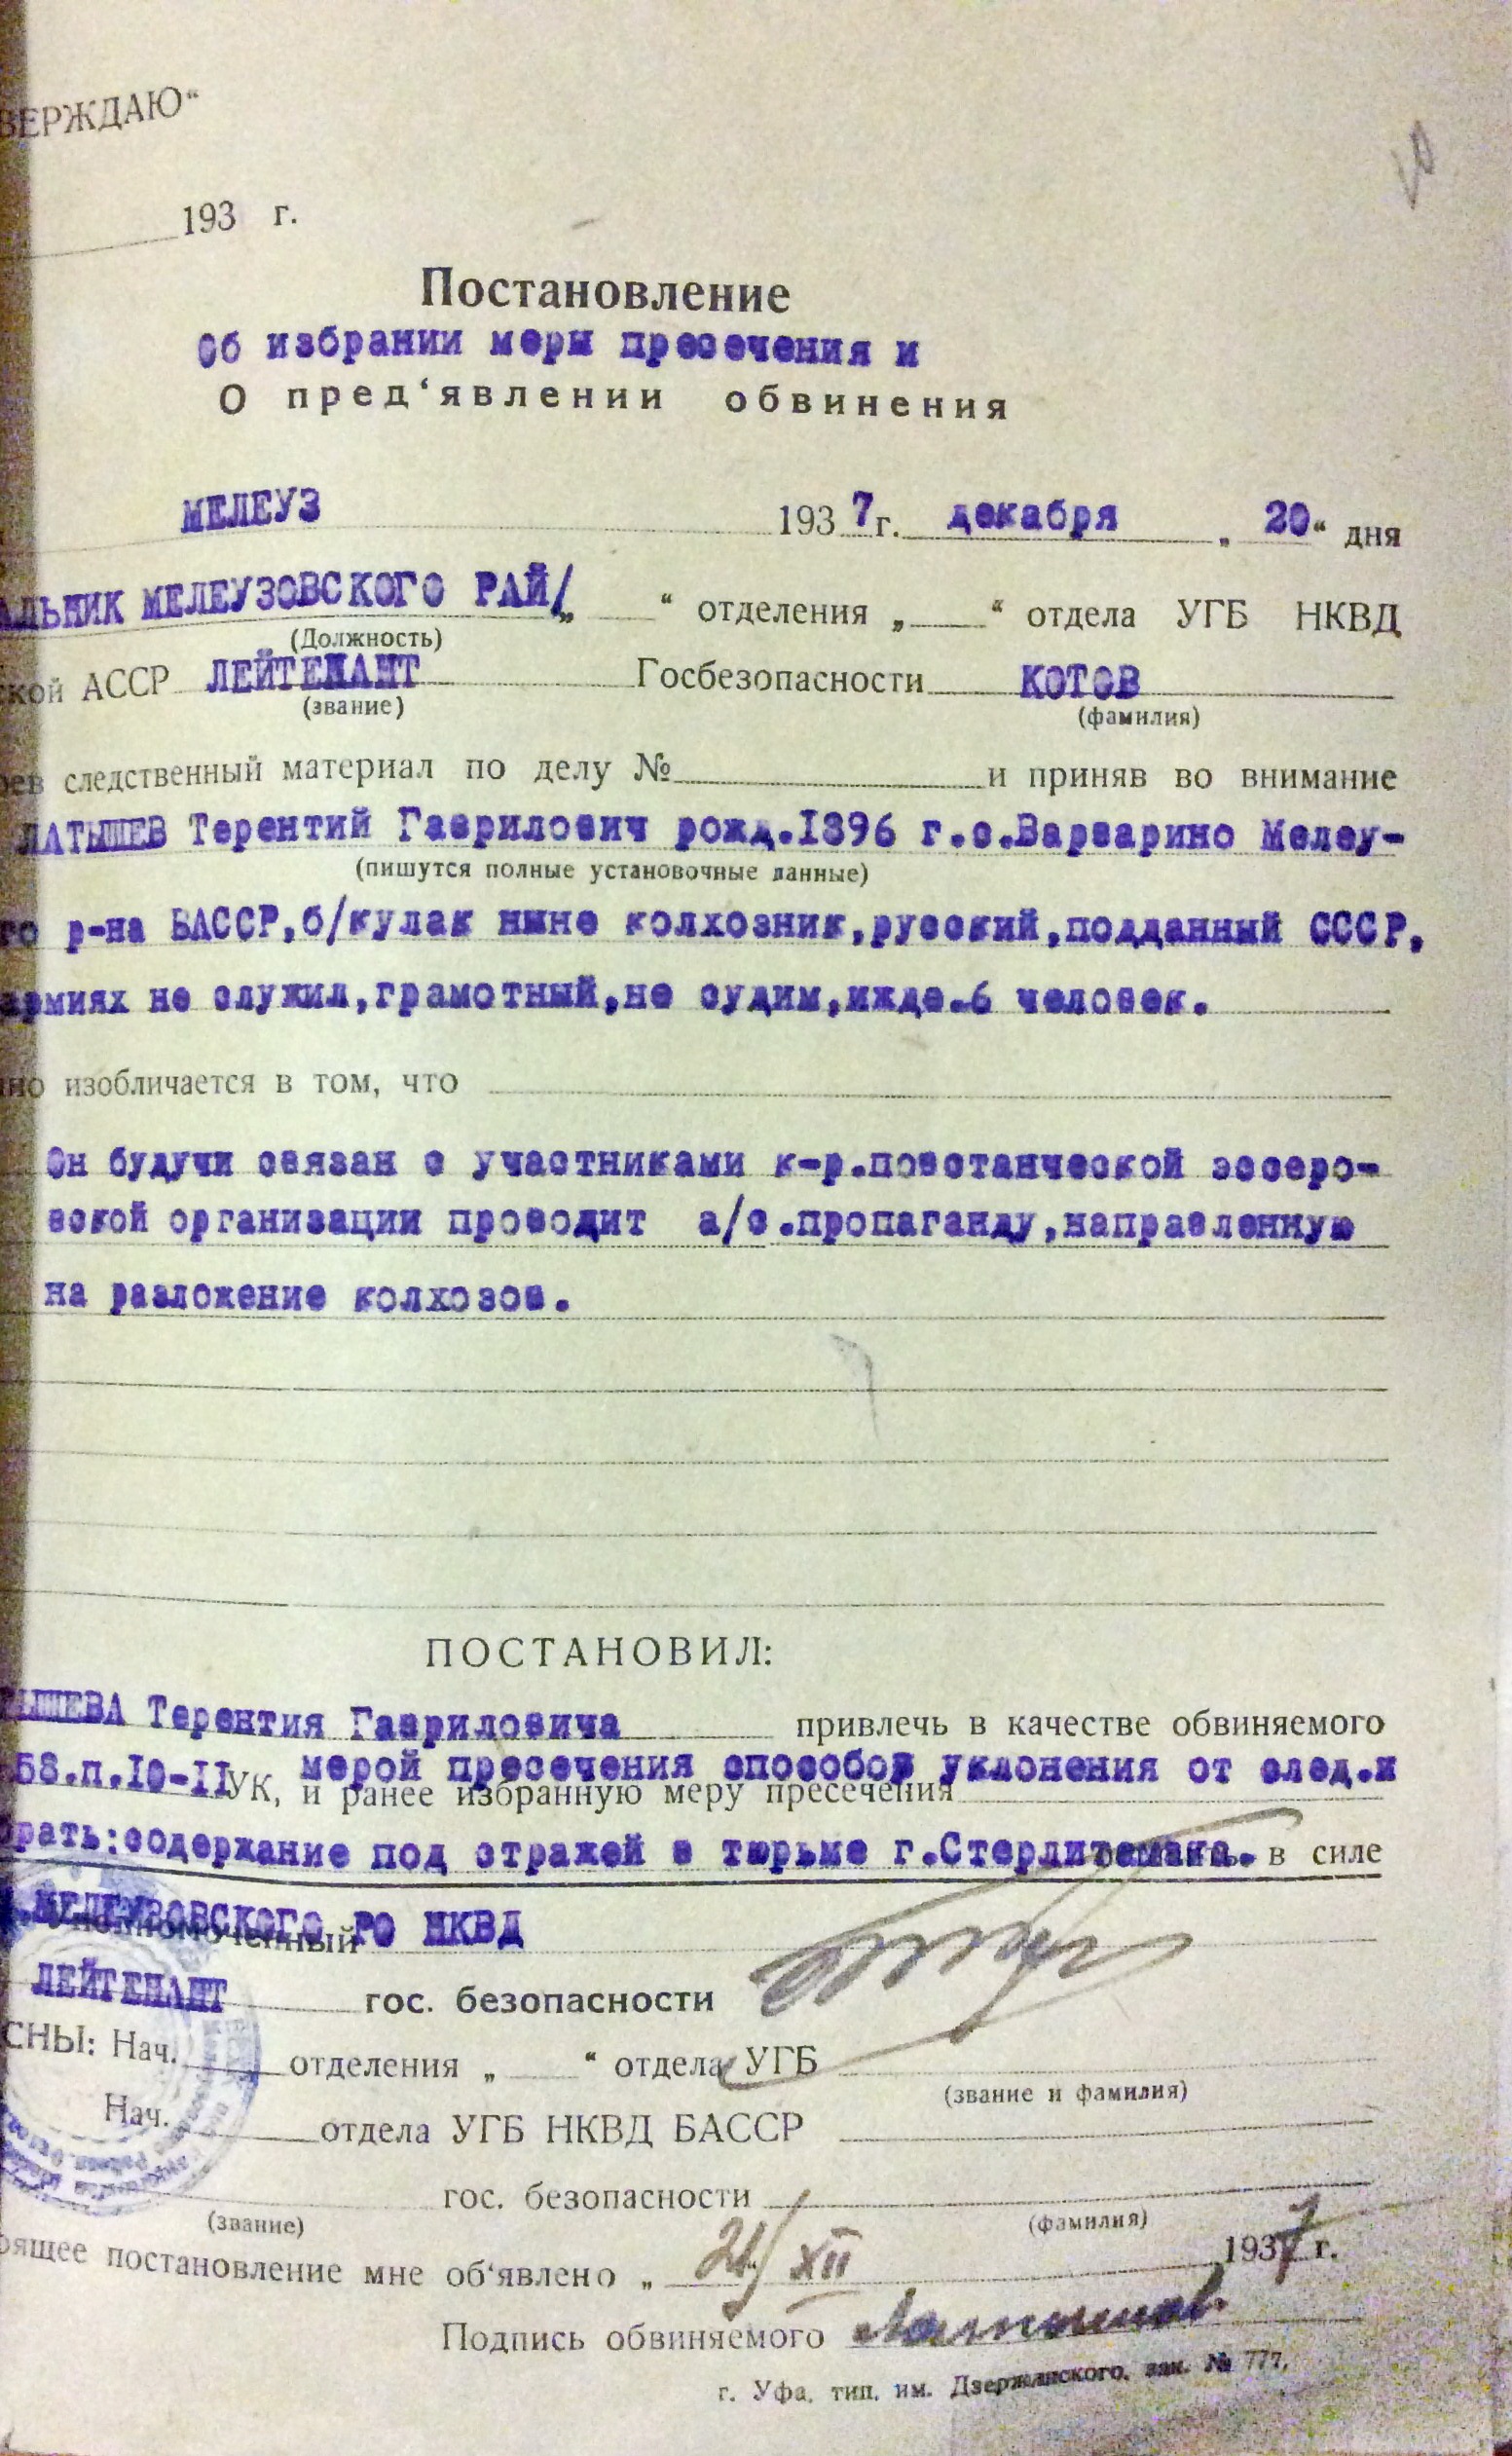 ВЕРЖДАЮ“
193 г.
Постановление
Об избрании меры пресечения и
О пред‘явлении обвинения
МЕЛЕУЗ 1937г. декабря „ 20“ дня
АЛЬНИК МЕЛЕУЗОВСКОГО РАЙ/ „ “ отделения „ “ отдела УГБ НКВД
(Должность)
кой АССР ЛЕЙТЕНАНТ Госбезопасности КОТОВ
(звание) (фамилия)
рев следственный материал по делу № и приняв во внимание
ЛАТЫШЕВ Терентий Гаврилович рожд.1896 г.с.Варварино Мелеу-
(пишутся полные установочные данные)
го р-на БАССР,б/кулак ныне колхозник,русский,подданный СССР,
армиях не служил,грамотный,не судим,ижде.6 человек.
но изобличается в том, что
Он будучи связан с участниками к-р.повстанческой эссеро-
вской организации проводит а/с.пропаганду,направленную
на разложение колхозов.
ПОСТАНОВИЛ:
ТЫШЕВА Терентия Гавриловича привлечь в качестве обвиняемого
мерой пресечения способов уклонения от след.и
58.п.10-11 УК, и ранее избранную меру пресечения
брать:содержание под стражей в тюрьме г.Стерлитамака. в силе
МЕЛЕУЗОВСКОГО РО НКВД
полномоченный
ЛЕЙТЕНАНТ гос. безопасности
СНЫ: Нач. отделения „ “ отдела УГБ
(звание и фамилия)
Нач. отдела УГБ НКВД БАССР
гос. безопасности
(звание) (фамилия)
оящее постановление мне об‘явлено „ 21/XII 1937 г.
Подпись обвиняемого Латышев
г. Уфа, тип. им. Дзержинского, зак. № 777.